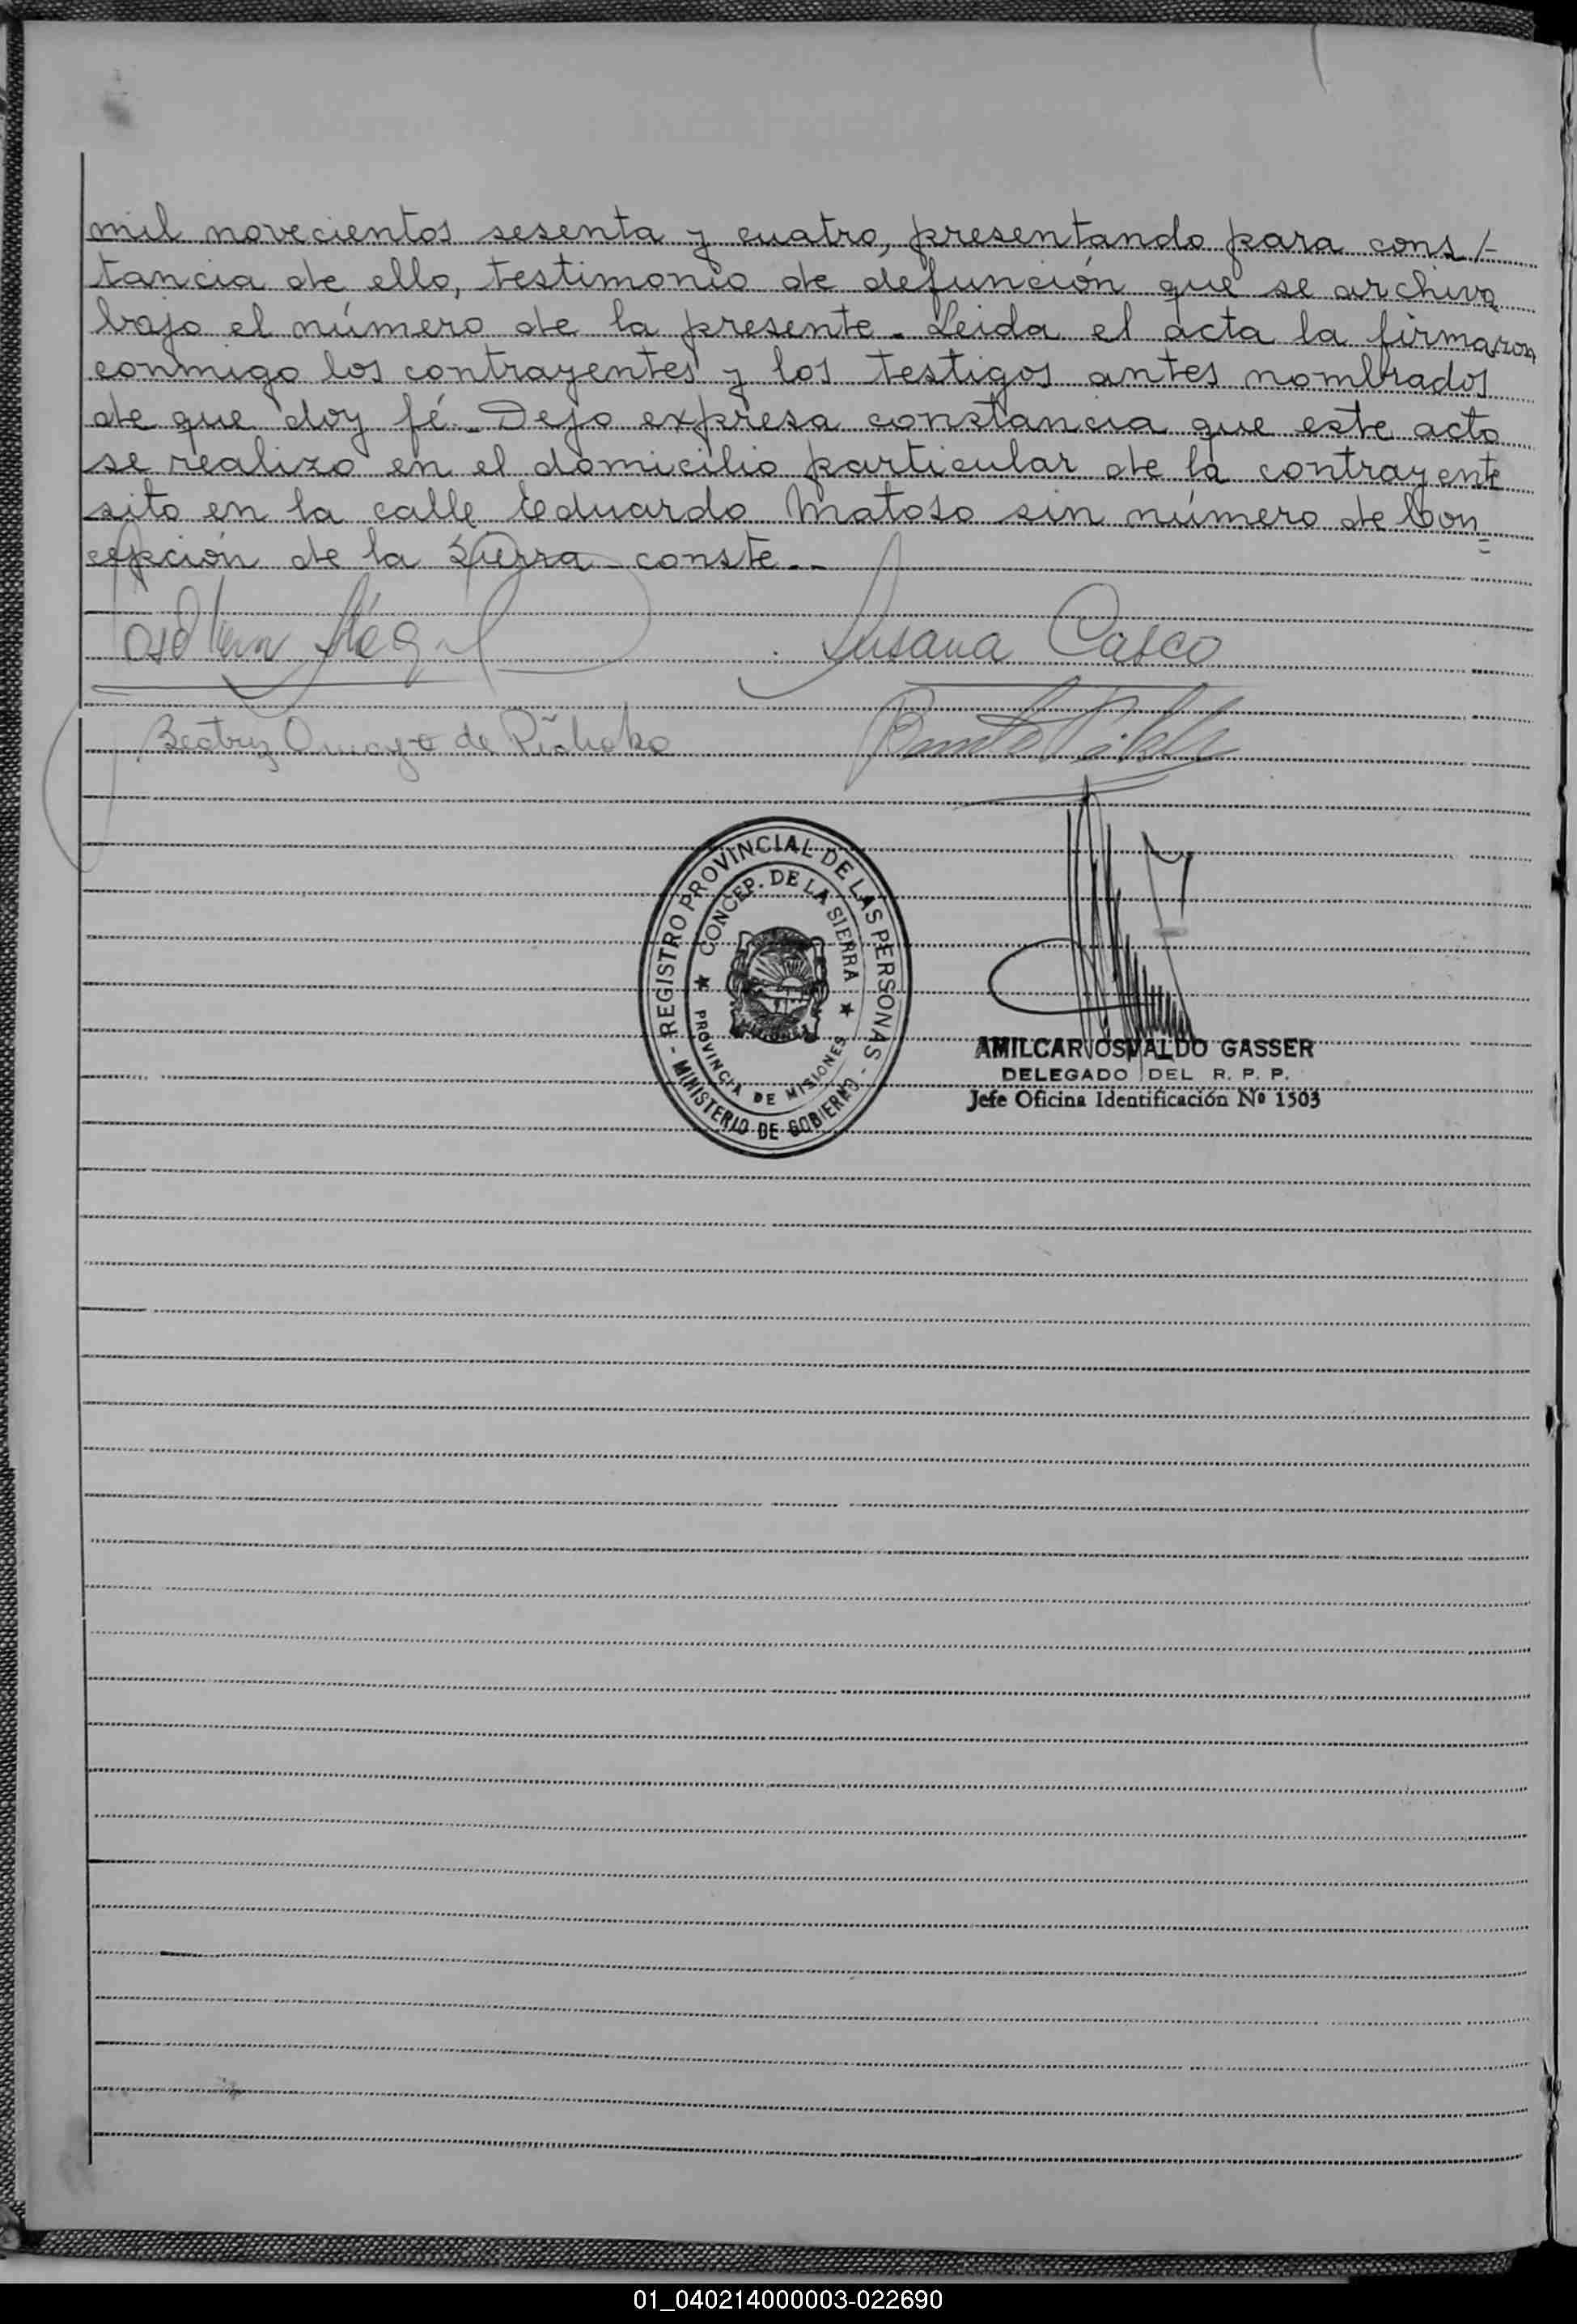 mil novecientos sesenta y cuatro, presentando para cons/-
tancia de ello, testimonio de defunción que se archiva
bajo el número de la presente. Leida el acta la firmaron
conmigo los contrayentes y los testigos antes nombrados
de que doy fé. Dejo expresa constancia que este acto
se realizo en el domicilio particular de la contrayente
sito en la calle Eduardo Matoso sin número de Con=
cepción de la Sierra conste.-
Susana Casco
Beatriz de
REGISTRO PROVINCIAL DE LAS PERSONAS
CONCEP. DE LA SIERRA
PROVINCIA DE MISIONES
- MINISTERIO DE GOBIERNO -
AMILCAR OSVALDO GASSER
DELEGADO DEL R. P. P.
Jefe Oficina Identificación Nº 1303
01_040214000003-022690